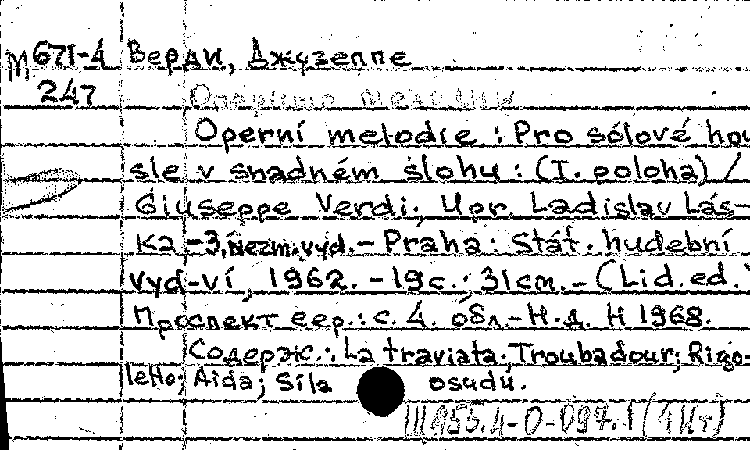 М 671-4 Верди, Джузеппе
247
Operní melodie : Pro sólové hou
sle v snadném slohu : (I. poloha) /
Giuseppe Verdi ; Upr. Ladislav Lás-
ka. - 3. nezm. vyd. - Praha : Stát. hudební
vyd-ví, 1962. - 19 с. ; 31 cm. - (Lid. ed.
Проспект сер.: с. 4. обл. - Н.д. H 1968.
Содерж.: La traviata; Troubadour; Rigo-
letto; Aida; Síla osudu.